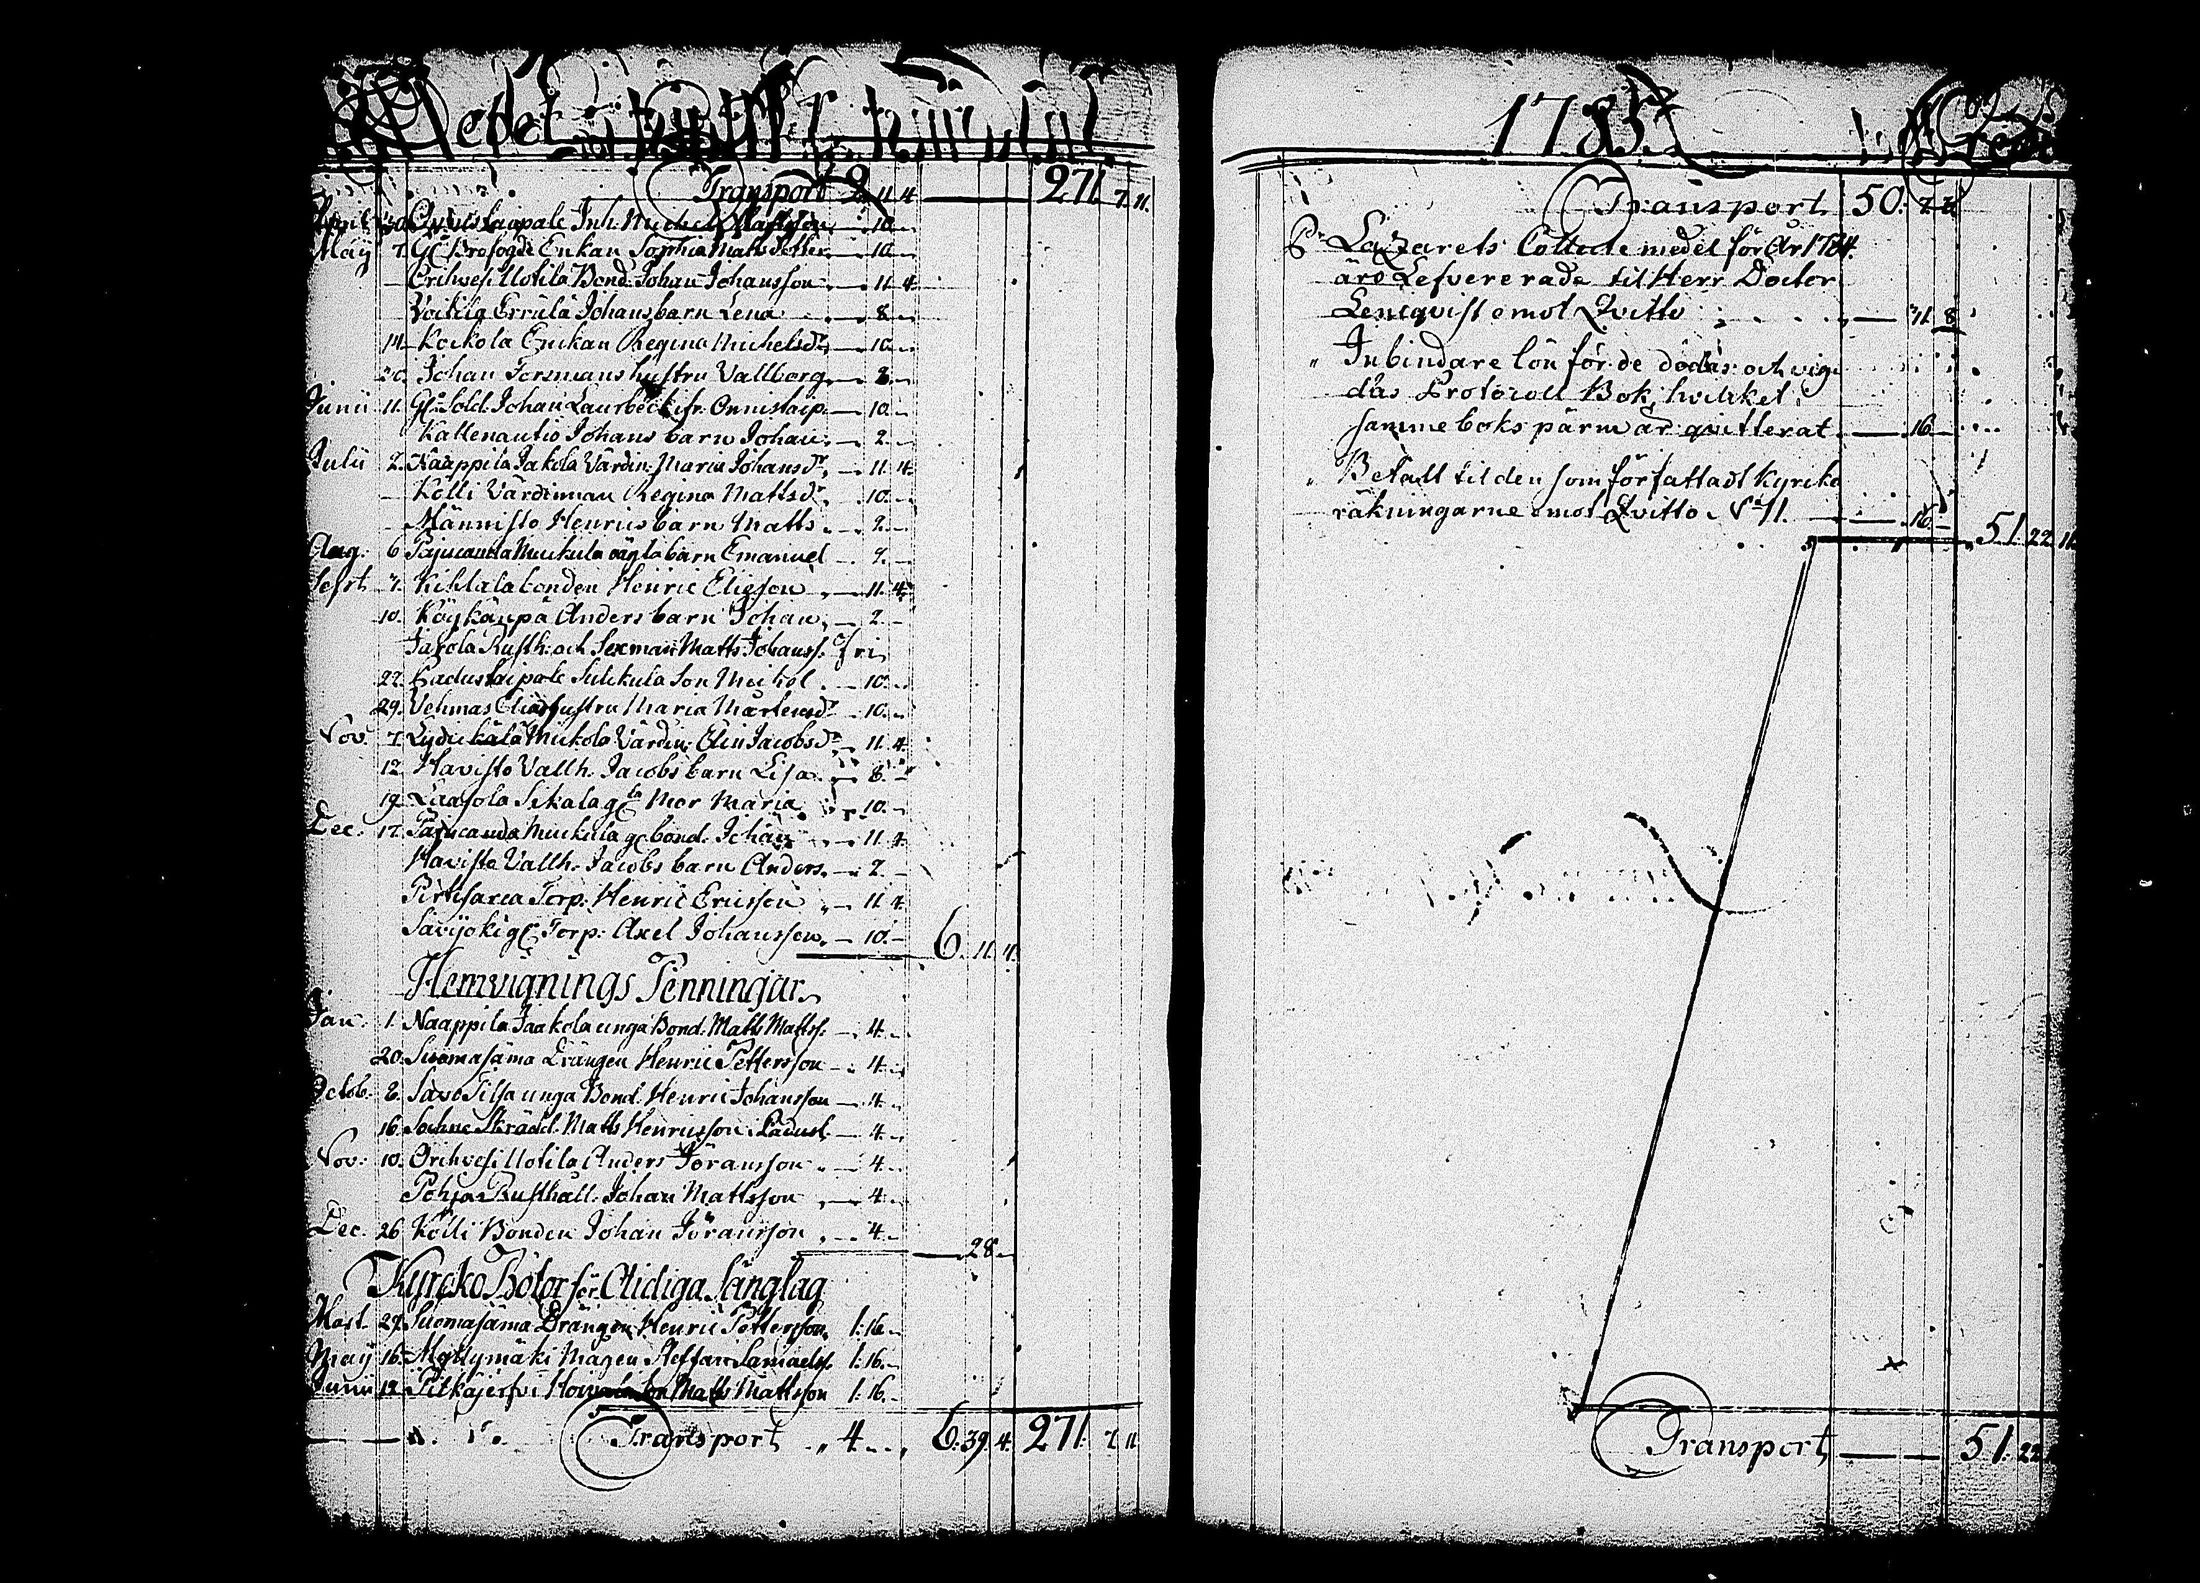 Debet
Transport 2. 11. 4. 271. 7. 11.
April 30. Inh. Michel Mattsson 10.
Maij 7. Enkan Sophia Matts dotter 10.
Orihvesi Uotila Bond. Johan Johansson 11. 4.
Erkilä Johans barn Lena 8.
14. Kockola Enkan Regina Michelsdr 10.
20. Johan Forsmans hustru Vallborg 8.
Junii 11. Sold. Johan Laurbeck ifr. Onnistaip. 10.
Kallenautio Johans barn Johan 2.
Julii 2. Naappila Jakola Värdin. Maria Johansdr 11. 4.
Kölli Värdinnan Regina Mattsdr 10.
Männisto Henrics barn Matts 2.
Aug. 6. Pajucanda Muckula barn Emanuel
Sept. 7. Kihlala bonden Henric Eliesson 11. 4.
10. Köykänpä Anders barn Johan 2.
Jafola Rusth. och Sexman Matts Johanss. fri
22. Padustaipale Sulckula Son Michel 10.
29. Vehmas Elias hustru Maria Mårtensdr 10.
Nov. 7. Lydickälä Muckola Värdin. Elin Jacobsdr 11. 4.
12. Havisto Vallh. Jacobs barn Lisa 8.
19. Laasola Sikala Mor Maria 10.
Dec. 17. Pajucanda Muckula gl. bond. Johan 11. 4.
Havisto Vallh. Jacobs barn Anders 2.
Pirttisarca Torp. Henric Ericsson 11. 4.
Savijoki gl. Torp. Axel Johansson 10. 6. 11. 4.
Hemvignings Penningar
Jan. 1. Naappila Jaakola unga Bond. Matts Mattss. 4.
20. Suomasäma Drängen Henric Pettersson 4.
Octob. 2. Savo Silja unga Bond. Henric Johansson 4.
16. Sockne Skrädd. Matts Henricsson i Padust. 4.
Nov. 10. Orihvesi Uotila Anders Jöransson 4.
Pohja Rusthåll. Johan Mattsson 4.
Dec. 26. Kölli Bonden Johan Jöransson 4. 28.
Kyrcko Böter för Otidiga Sänglag
Mart. 27. Suomasäma Drängen Henric Pettersson 1. 16.
Maij 16. Myllymäki Magen Steffan Samuelss. 1. 16.
Junii 12. Pitkäjerfvi Matts Mattsson 1. 16.
Transport 4. 6. 39. 4. 271. 7. 11.
1785 Credit
Transport 50.
Pr Lazarets Collecte medel för År 1784.
äro Lefvererade til Herr Doctor
Lencqvist emot Qvitto 8
" Inbindare lön för de dödas och vig-
das Protocoll Bok, hvilket,
samme boks pärm är quitterat 16.
" Betalt til den som författadt Kyrcko
räkningarne emot Qvitto No 11. 16. 51. 22. 11.
Transport 51. 22.